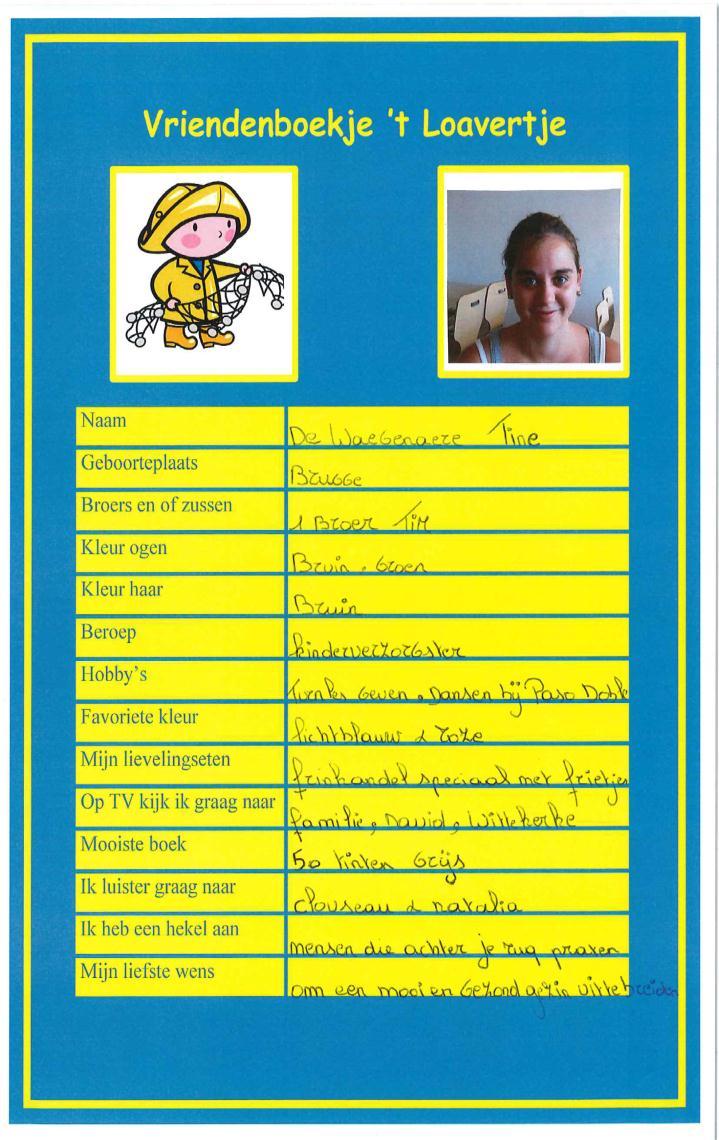 Vriendenboekje 't Loavertje
Naam De Waegenaere Tine
Geboorteplaats Brugge
Broers en of zussen 1 Broer Tim
Kleur ogen Bruin, Groen
Kleur haar Bruin
Beroep kinderverzorgster
Hobby's Turnles Geven, Dansen bij Paso Doble
Favoriete kleur lichtblauw & roze
Mijn lievelingseten frinkandel speciaal met frietjes
Op TV kijk ik graag naar familie, David, Wittekerke
Mooiste boek 50 tinten Grijs
Ik luister graag naar Clouseau & natalia
Ik heb een hekel aan mensen die achter je rug praten
Mijn liefste wens om een mooi en Gezond gezin uitte breiden